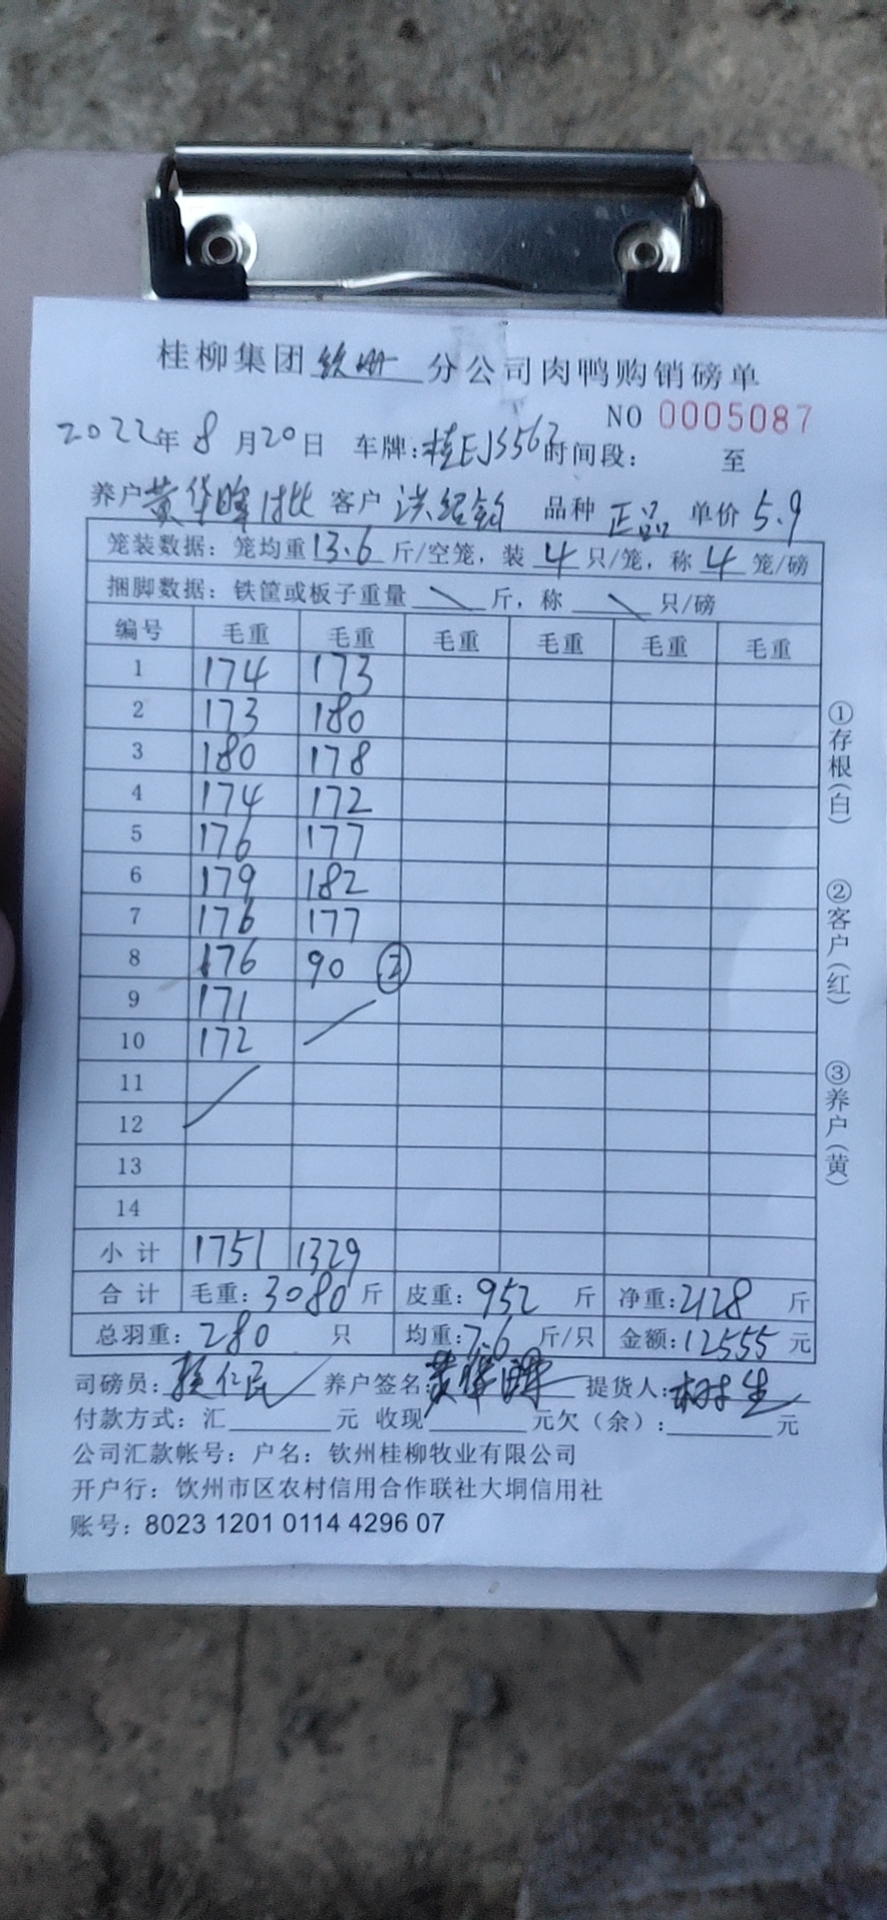 桂柳集团 钦州 分公司肉鸭购销磅单
NO 0005087
2022年 8 月20日 车牌:桂EJS563 时间段: 至
养户 黄华晖 客户 洪绍钧 品种 正品 单价 5.9
笼装数据: 笼均重 13.6 斤/空笼, 装 4 只/笼, 称 4 笼/磅
捆脚数据: 铁筐或板子重量 \ 斤, 称 \ 只/磅
编号 毛重 毛重 毛重 毛重 毛重 毛重
1 174 173
2 173 180
3 180 178
4 174 172
5 176 177
6 179 182
7 176 177
8 176 90 ②
9 171
10 172
11
12
13
14
小 计 1751 1329
合 计 毛重: 3080 斤 皮重: 952 斤 净重: 2128 斤
总羽重: 280 只 均重: 7.6 斤/只 金额: 12555 元
司磅员: 养户签名: 黄华晖 提货人:
付款方式: 汇 元 收现 元欠(余): 元
公司汇款帐号: 户名: 钦州桂柳牧业有限公司
开户行: 钦州市区农村信用合作联社大垌信用社
账号: 8023 1201 0114 4296 07
①存根(白)
②客户(红)
③养户(黄)